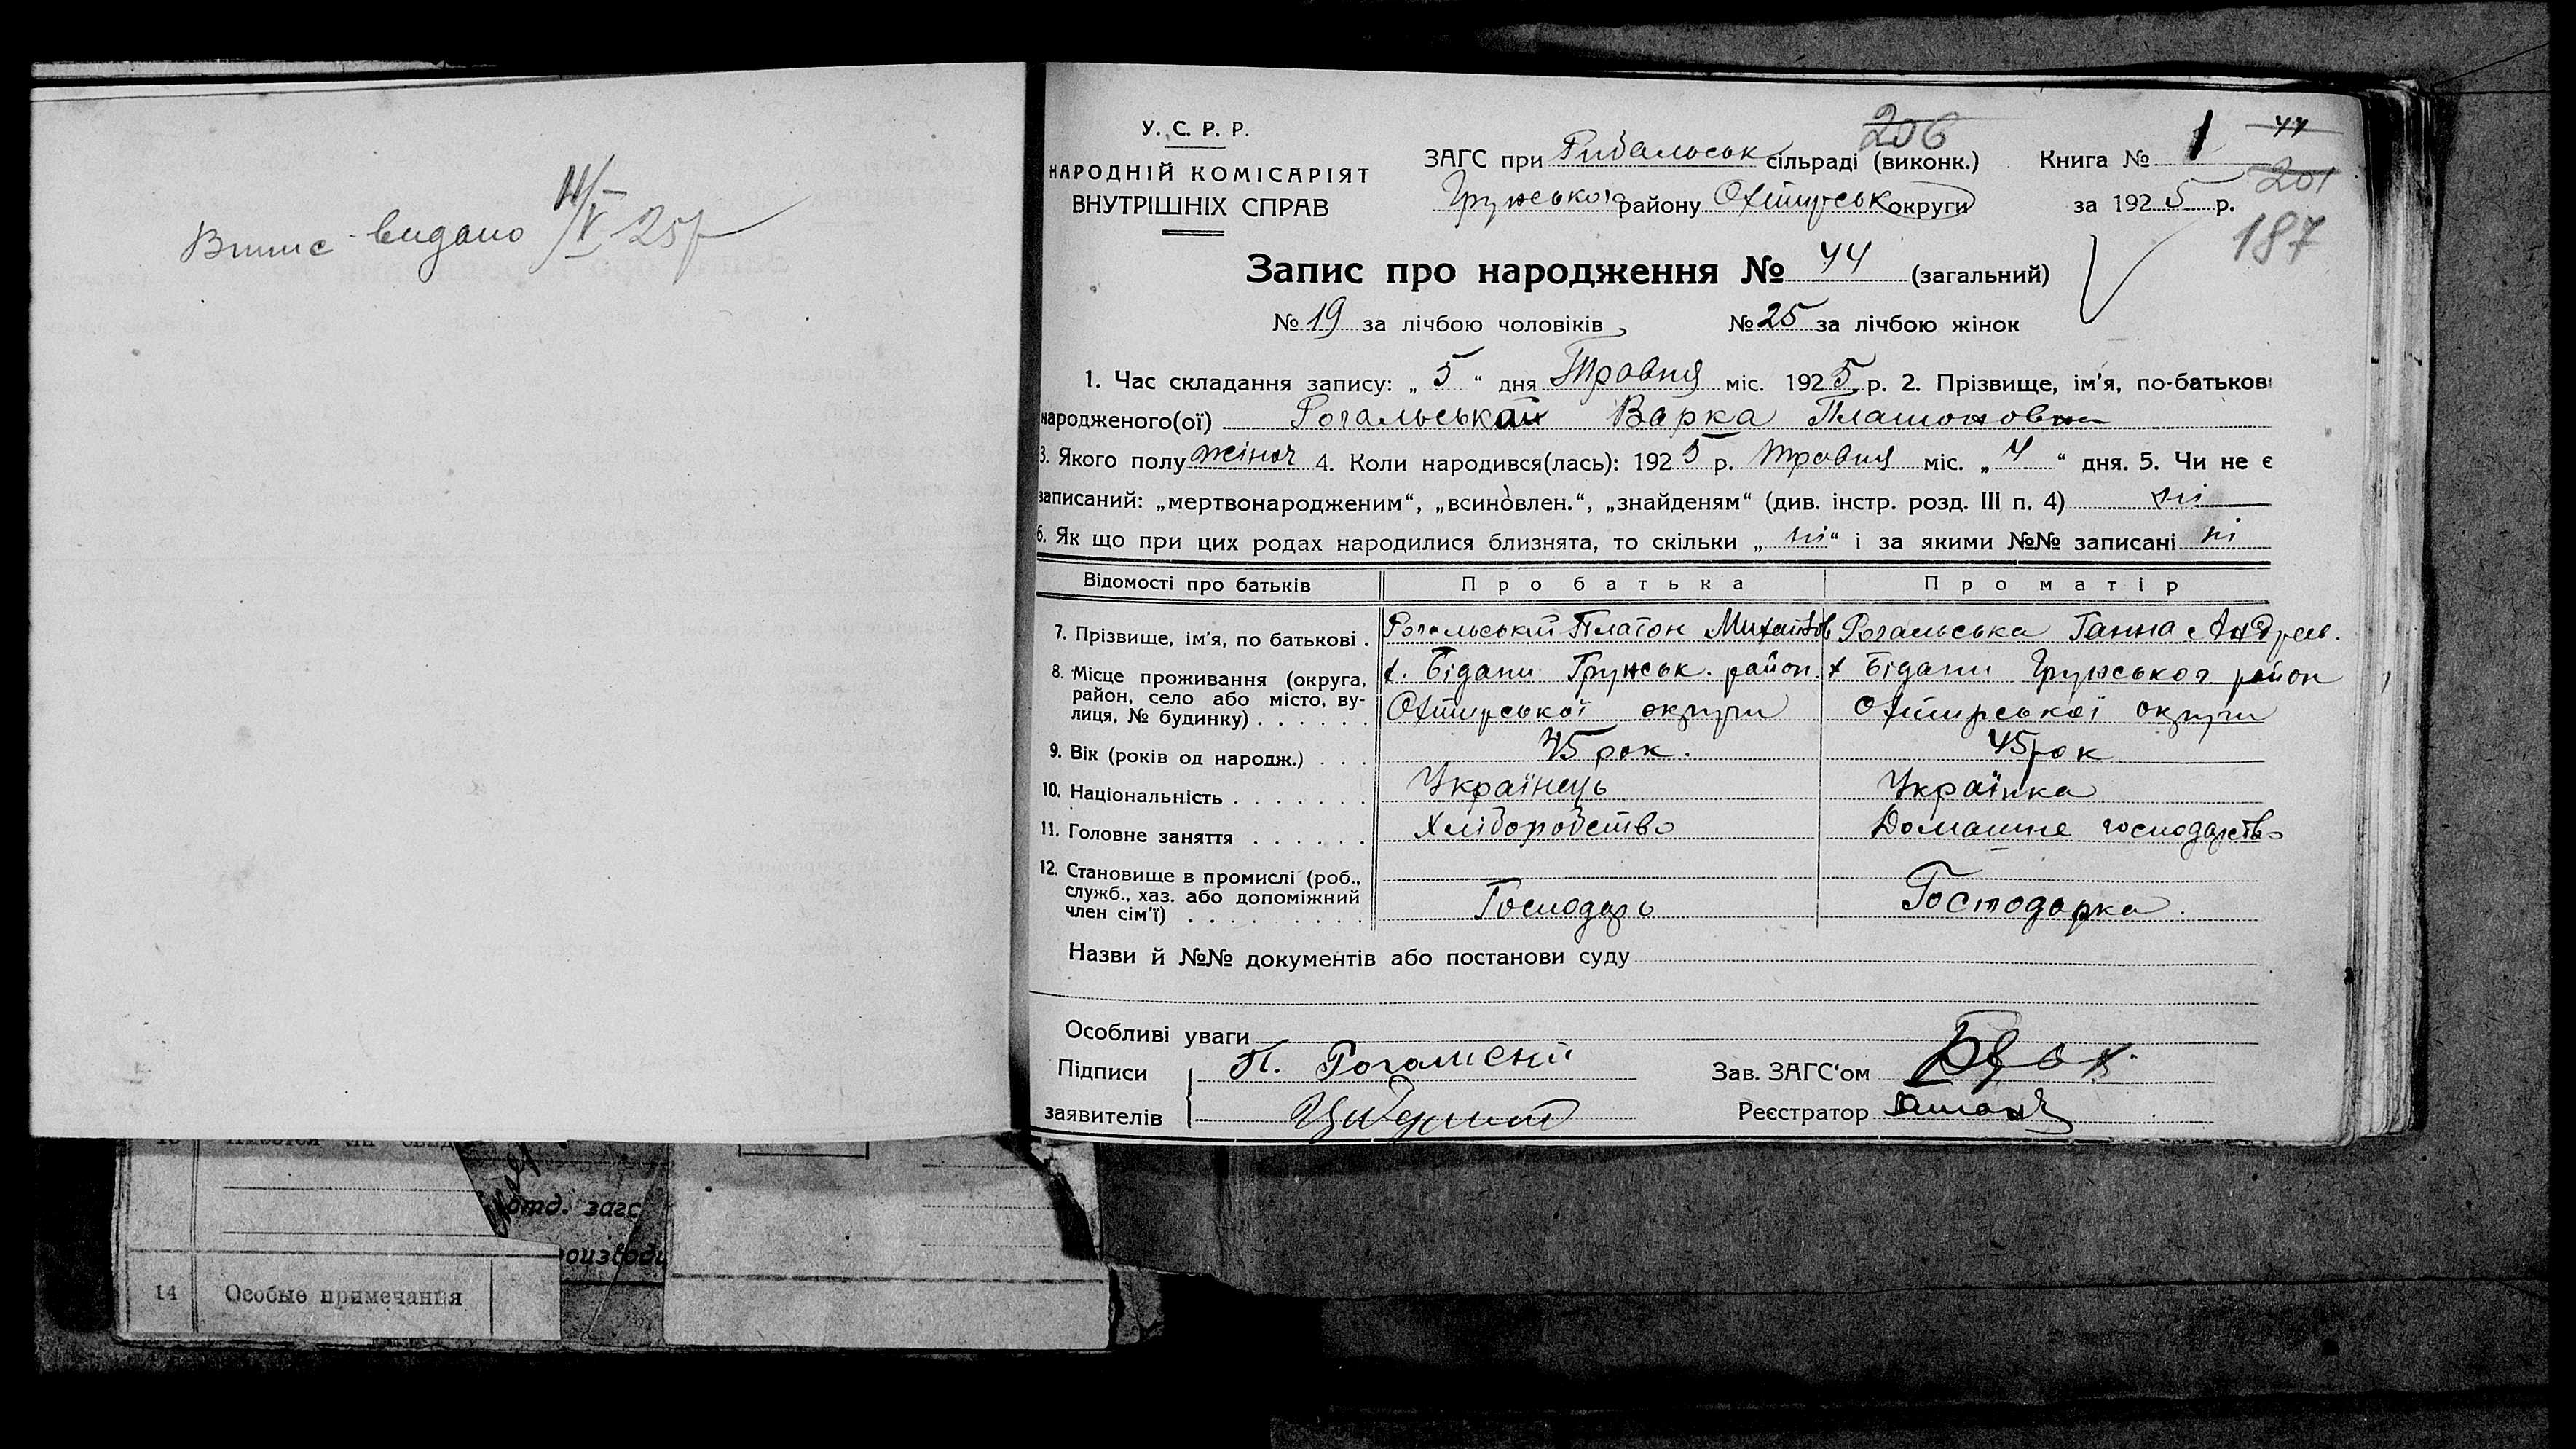 Випис видано 11/V 25 р
У. С. Р. Р.
НАРОДНІЙ КОМІСАРІЯТ
ВНУТРІШНІХ СПРАВ
206
ЗАГС при Рибальськ сільраді (виконк.)
Грунського району Охтирськ округи
Книга № 1
за 1925 р.
44
201
187
Запис про народження № 44 (загальний)
№ 19 за лічбою чоловіків № 25 за лічбою жінок
1. Час складання запису: „ 5 “ дня Травня міс. 1925 р. 2. Прізвище, ім'я, по-батькові
народженого(ої) Рогальська Варка Платоновна
3. Якого полу жіноч 4. Коли народився(лась): 1925 р. Травня міс. „ 4 “ дня. 5. Чи не є
записаний: „мертвонародженим“, „всиновлен.“, „знайденям“ (див. інстр. розд. III п. 4) ні
6. Як що при цих родах народилися близнята, то скільки „ ні “ і за якими №№ записані ні
Відомості про батьків Про батька Про матір
7. Прізвище, ім'я, по батькові . Рогальский Платон Михайлов Рогальська Ганна Андреев.
8. Місце проживання (округа, район, село або місто, ву-лиця, № будинку) . . . . . .
х. Бідани Грунськ. район. х Бідани Грунського район
Охтирської округи Охтирської округи
9. Вік (років од народж.) . . . 45 рок. 45 рок
10. Національність . . . . . . . Українець Українка
11. Головне заняття . . . . . . Хліборобство Домашне господарство
12. Становище в промислі (роб., служб., хаз. або допоміжний член сім'ї) . . . . . . . . .
Господарь Господарка.
Назви й №№ документів або постанови суду
Особливі уваги
Підписи П. Рогалиский Зав. ЗАГС'ом
заявителів Реєстратор
отд. загс
14 Особые примечания